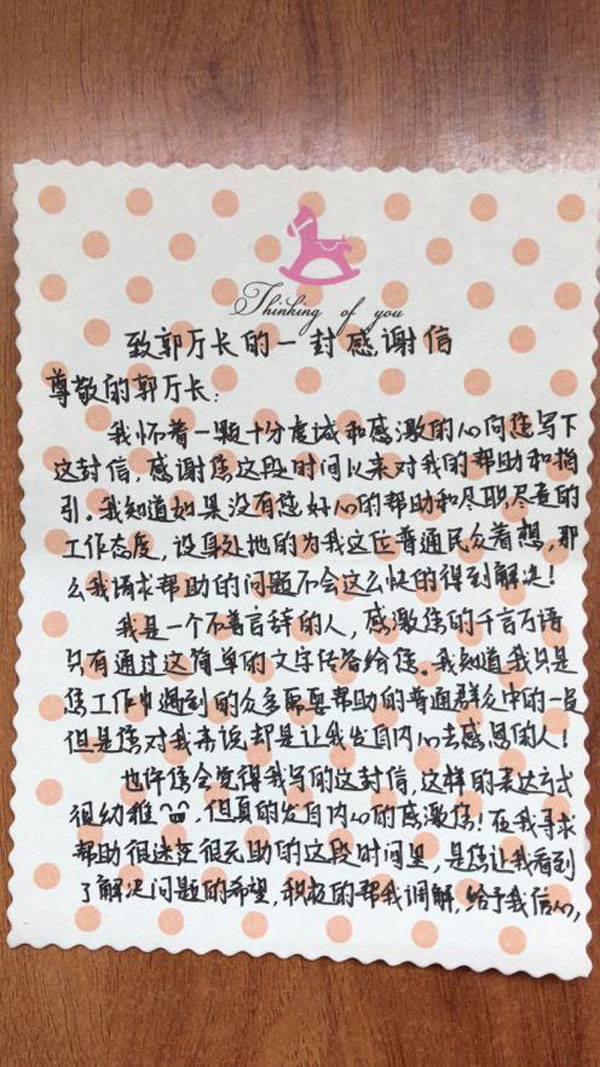 Thinking of you
致郭厅长的一封感谢信
尊敬的郭厅长：
我怀着一颗十分虔诚和感激的心向您写下
这封信，感谢您这段时间以来对我的帮助和指
引。我知道如果没有您好心的帮助和尽职尽责的
工作态度，设身处地的为我这位普通民众着想，那
么我请求帮助的问题不会这么快的得到解决！
我是一个不善言辞的人，感激您的千言万语
只有通过这简单的文字传答给您。我知道我只是
您工作中遇到的众多需要帮助的普通群众中的一员
但是您对我来说却是让我发自内心去感恩的人！
也许您会觉得我写的这封信，这样的表达方式
很幼稚，但真的发自内心的感激您！在我寻求
帮助很迷茫很无助的这段时间里，是您让我看到
了解决问题的希望，积极的帮我调解，给予我信心，